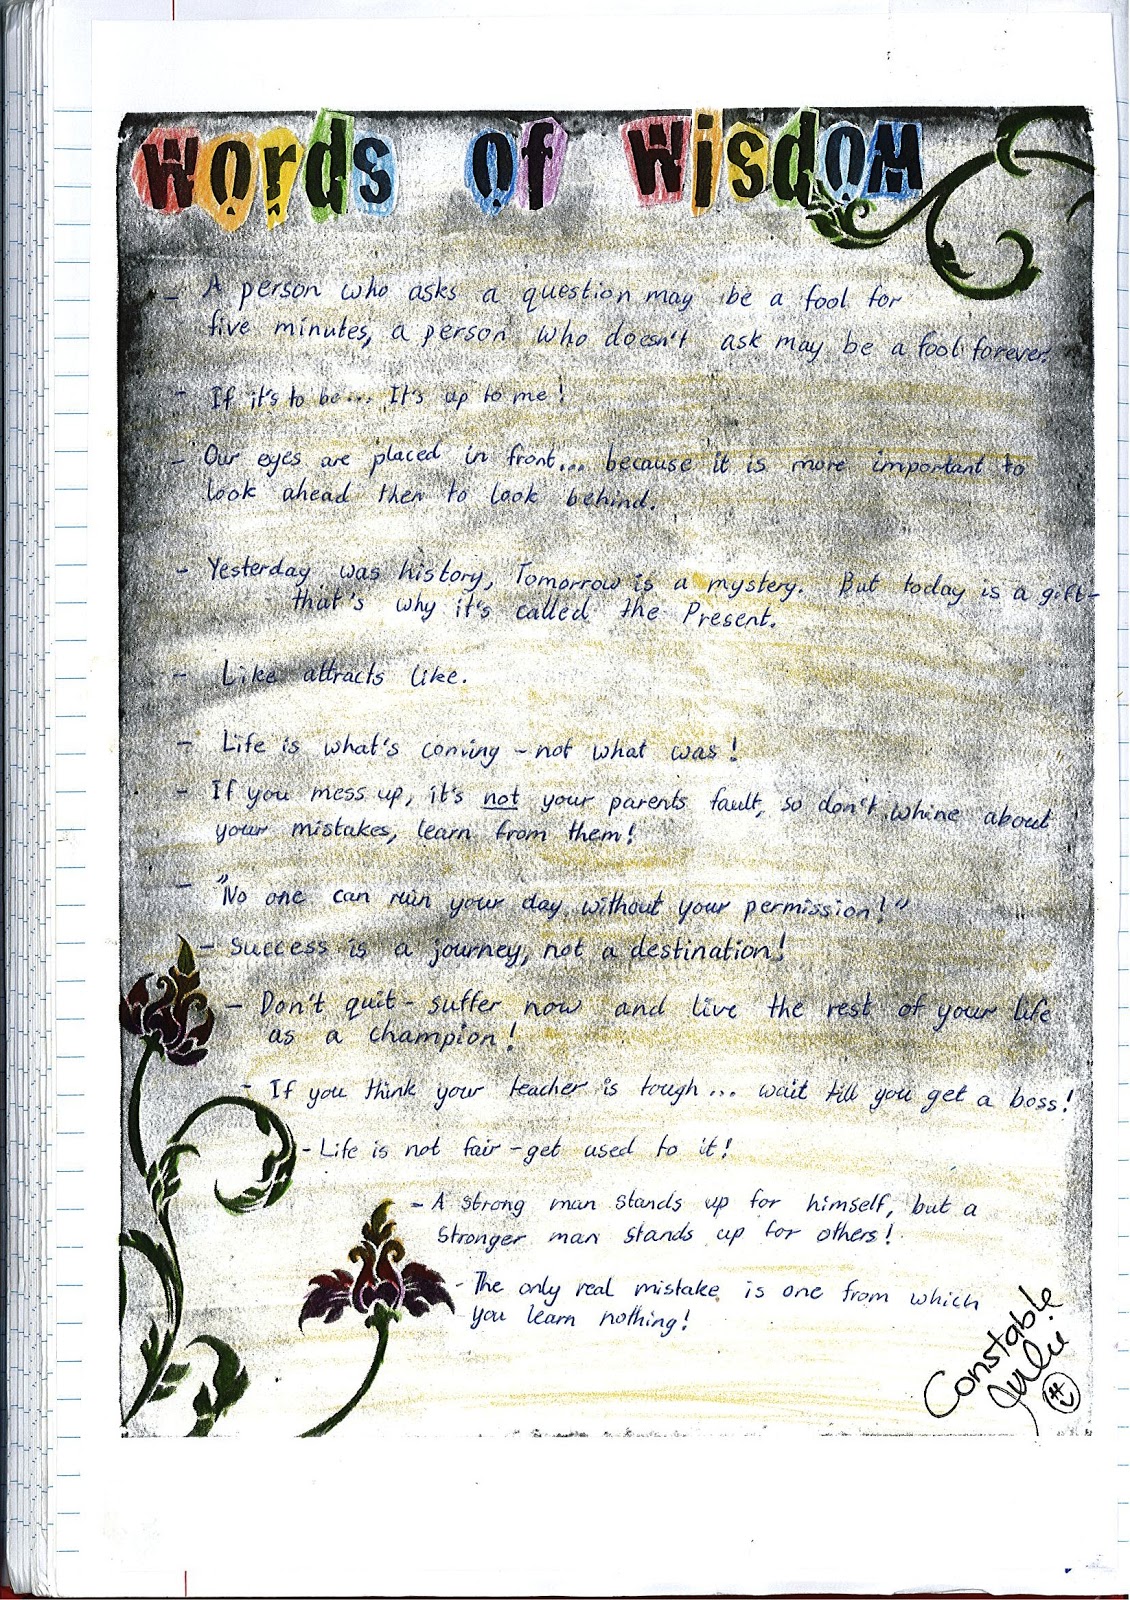 Words of Wisdom
- A person who asks a question may be a fool for
five minutes, a person who doesn't ask may be a fool forever.
- If it's to be... It's up to me!
- Our eyes are placed in front... because it is more important to
look ahead then to look behind.
- Yesterday was history, Tomorrow is a mystery. But today is a gift-
that's why it's called the Present.
- Like attracts like.
- Life is what's coming - not what was!
- If you mess up, it's not your parents fault, so don't whine about
your mistakes, learn from them!
- "No one can ruin your day without your permission!"
- Success is a journey, not a destination!
- Don't quit - suffer now and live the rest of your life
as a champion!
- If you think your teacher is tough... wait till you get a boss!
- Life is not fair - get used to it!
- A strong man stands up for himself, but a
stronger man stands up for others!
- The only real mistake is one from which
you learn nothing!
Constable
Julie